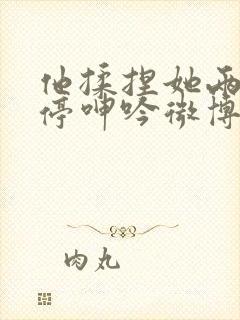 他揉捏她两
停呻吟微博
肉丸